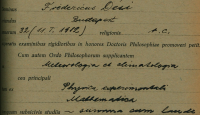 Fridericus Dési
Budapest
religionis
rato examinibus rigidioribus in honores Doctoris Philosophiae promoveri petit.
Cum autem Ordo Philosophorum supplicantem
Meteorologia et climatologia
cen principali
Physica experimentali
Mathematica
quam subsidiis studiis summa cum laude